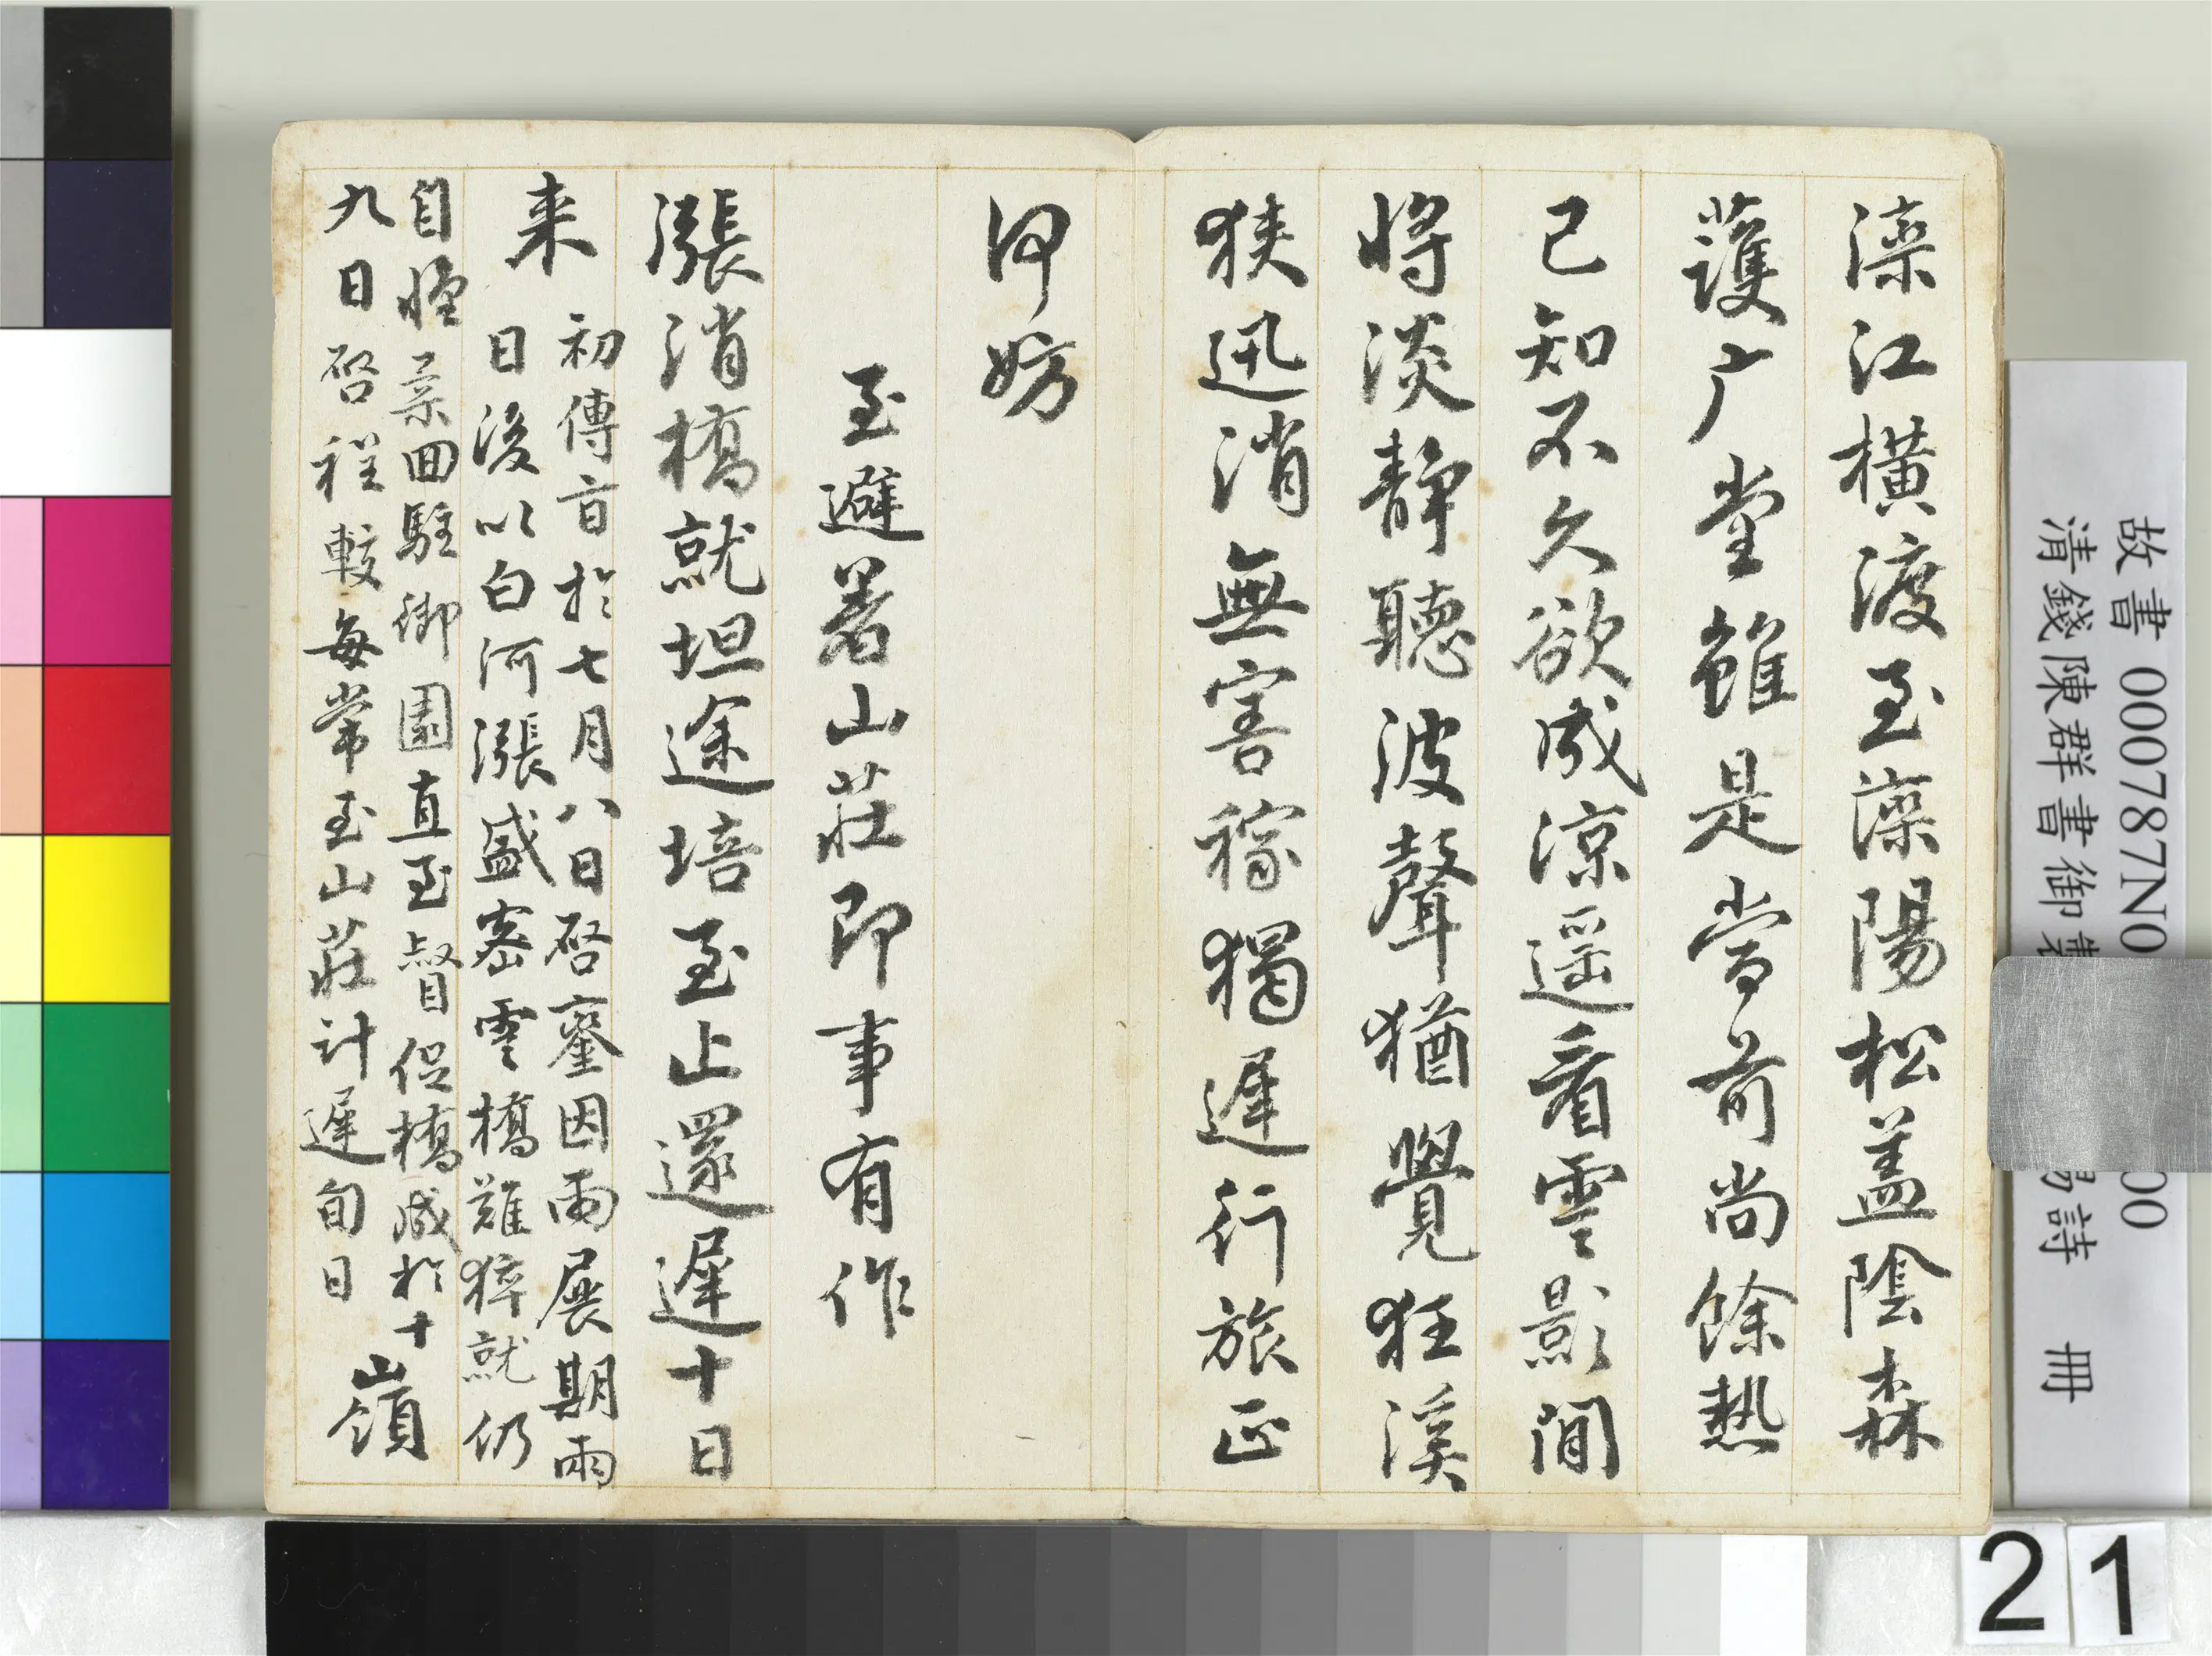 灤江橫渡至灤陽松盖陰森
護广堂雖是當前尚餘熱
已知不久欲成涼遥看雲影閒
將淡靜聽波聲猶覺狂溪
狹迅消無害稼獨遲行旅正
何妨
至避暑山莊即事有作
漲消橋就坦途培至止還遲十日
来
初傳旨於七月八日啓鑾因雨展期雨
日後以白河漲盛密雲橋難猝就仍
自懷柔回駐御園直至督促橋成於十
九日啓程較每常至山莊計遲旬日
嶺
故書000787N0
00
清錢陳群書御製
賜詩 冊
21